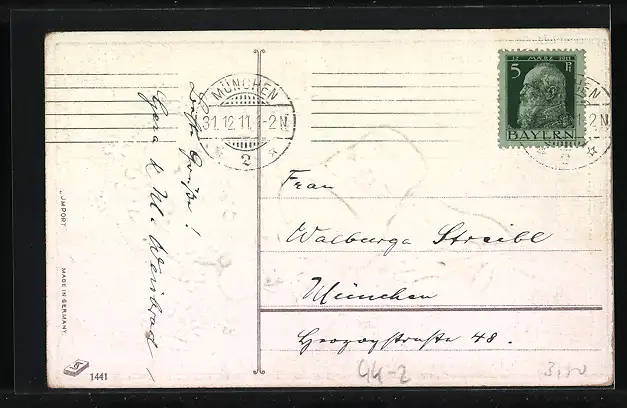 MÜNCHEN
31.12.11. 1-2 N
2
12 MÄRZ 1911
5 Pf
BAYERN
HEN
1-2 N.
2
Beste Grüße!
Frau
Walburga Streibl
München
Herzogstraße 48.
IMPORT
MADE IN GERMANY.
1441
44-2
3,50